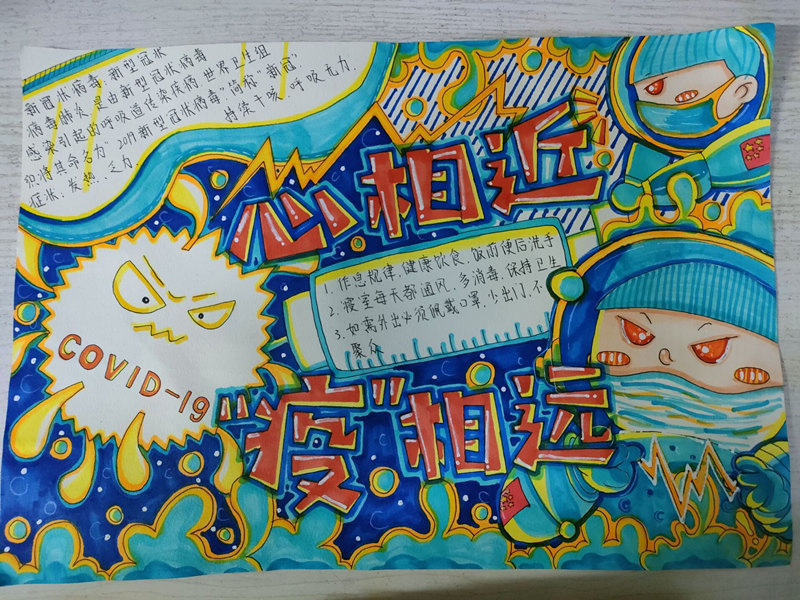 新冠状病毒:新型冠状
病毒肺炎是由新型冠状病毒
感染引起的呼吸道传染疾病 世界卫生组
织将其命名为"2019新型冠状病毒"简称"新冠".
症状:发热.乏力 持续干咳.呼吸无力.
心相近
1. 作息规律,健康饮食.饭前便后洗手
2. 寝室每天都通风.多消毒.保持卫生
3. 如需外出必须佩戴口罩.少出门.不
聚众
COVID-19
"疫"相远